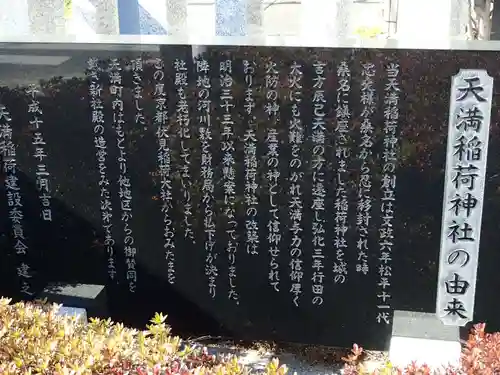 天満稲荷神社の由来
当天満稲荷神社の創立は文政六年松平十一代
忠堯様が桑名から忍に移封された時
桑名に鎮座されました稲荷神社を城の
吉方辰己天満の方に遷座し弘化三年行田の
大火にも災難をのがれ天満与力の信仰厚く
火防の神、産業の神として信仰せられて
おります。天満稲荷神社の改築は
明治三十三年以来懸案になっておりました。
隣地の河川敷を財務局から払下げが決まり
社殿も老朽化してまいりました。
この度京都伏見稲荷大社からおみたまを
頂きました。
天満町内はもとより他地区からの御賛同を
戴き新社殿の造営をみた次第であります
平成十五年三月吉日
天満稲荷建設委員会 建之